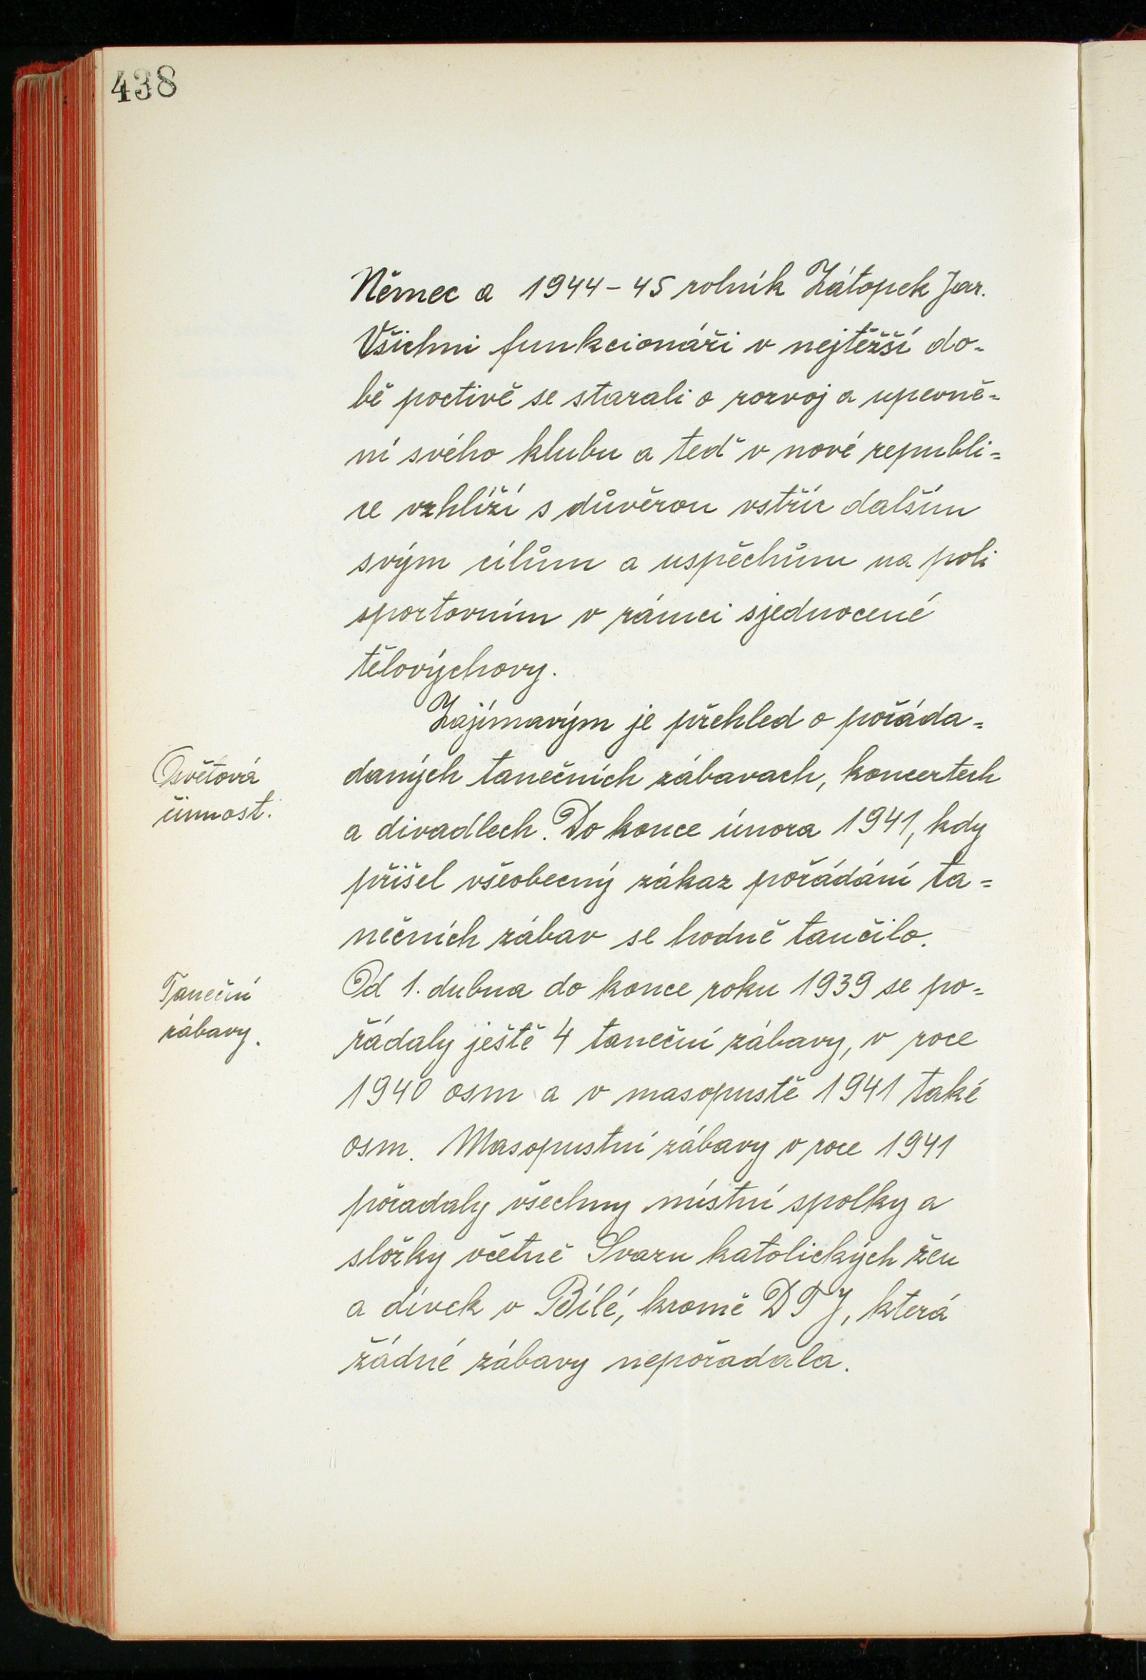 438
Němec a 1944 - 45 rolník Zátopek Jar.
Všichni funkcionáři v nejtěžší do-
bě poctivě se starali o rozvoj a upevně-
ní svého klubu a teď v nové republi-
ce vzhlíží s důvěrou vstříc dalším
svým cílům a uspěchům na poli
sportovním v rámci sjednocené
tělovýchovy.
Zajímavým je přehled o pořáda-
Osvětová
činnost.
daných tanečních zábavach, koncertech
a divadlech. Do konce února 1941, kdy
přišel všeobecný zákaz pořádání ta-
nečních zábav se hodně tančilo.
Taneční
zábavy.
Od 1. dubna do konce roku 1939 se po-
řádaly ještě 4 taneční zábavy, v roce
1940 osm a v masopustě 1941 také
osm. Masopustní zábavy v roce 1941
pořadaly všechny místní spolky a
složky včetně Svazu katolických žen
a dívek v Bílé, kromě DTJ, která
žádné zábavy nepořadala.